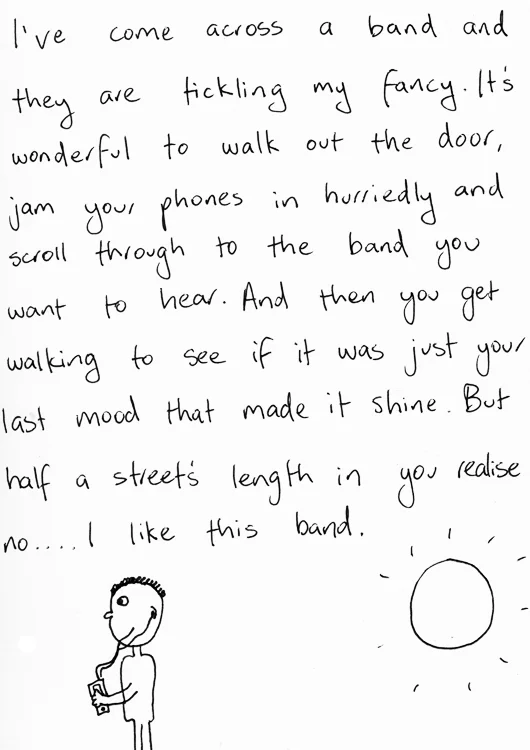 I've come across a band and
they are tickling my fancy. It's
wonderful to walk out the door,
jam your phones in hurriedly and
scroll through to the band you
want to hear. And then you get
walking to see if it was just your
last mood that made it shine. But
half a street's length in you realise
no.... I like this band.